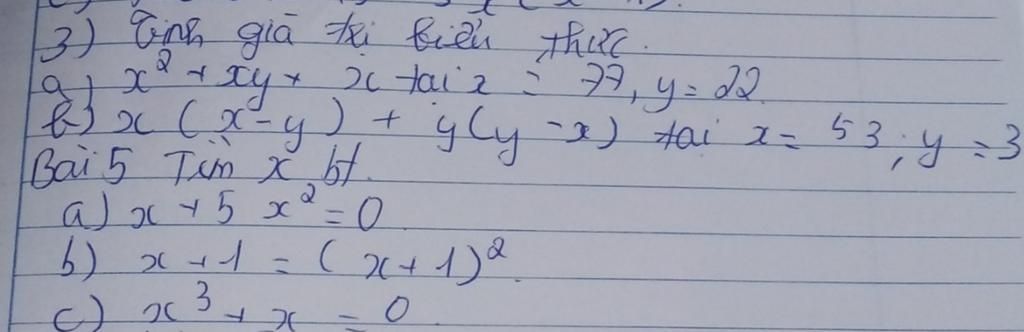 3) Tính giá trị biểu thức.
a) x² + xy + x tại x = 77, y = 22
b) x (x - y) + y(y - x) tại x = 53; y = 3
Bài 5 Tìm x bt
a) x + 5 x² = 0
b) x + 1 = (x + 1)²
c) x³ + x = 0